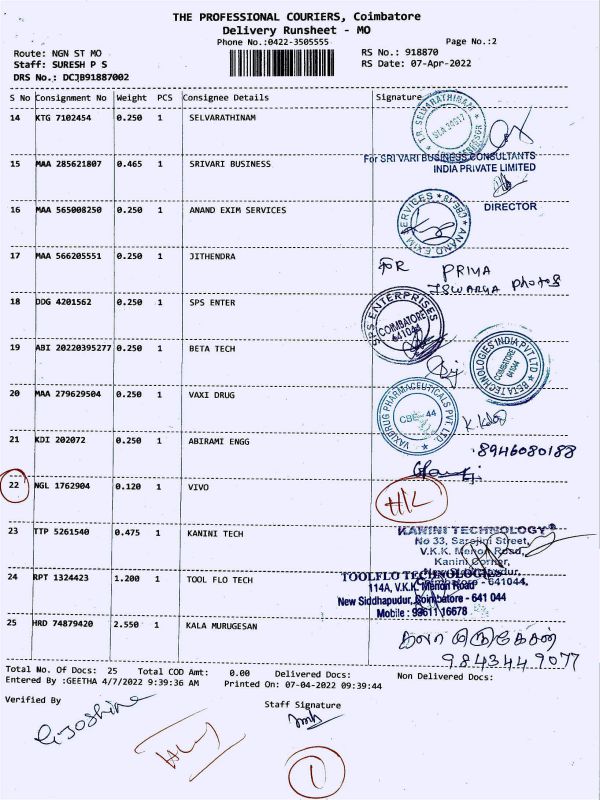 THE PROFESSIONAL COURIERS, Coimbatore
Delivery Runsheet - MO
Phone No.:0422-3505555
Page No.:2
Route: NGN ST MO
RS No.: 918870
Staff: SURESH P S
RS Date: 07-Apr-2022
DRS No.: DCJB91887002
S No Consignment No Weight PCS Consignee Details Signature
14 KTG 7102454 0.250 1 SELVARATHINAM
T.R. SELVARATHINAM
15 MAA 285621807 0.465 1 SRIVARI BUSINESS
For SRI VARI BUSINESS CONSULTANTS
INDIA PRIVATE LIMITED
DIRECTOR
16 MAA 565008250 0.250 1 ANAND EXIM SERVICES
ANAND EXIM SERVICES CBE-18
17 MAA 566205551 0.250 1 JITHENDRA
FOR PRIYA
ISWARYA Photos
18 DDG 4201562 0.250 1 SPS ENTER
SPS ENTERPRISES
COIMBATORE
641044
19 ABI 20220395277 0.250 1 BETA TECH
BETA TECHNOLOGIES INDIA PVT LTD
COIMBATORE
641044
20 MAA 279629504 0.250 1 VAXI DRUG
VAXIDRUG PHARMACEUTICALS PVT. LTD.
CBE-44
21 KDI 202072 0.250 1 ABIRAMI ENGG
8946080188
22 NGL 1762904 0.120 1 VIVO
23 TTP 5261540 0.475 1 KANINI TECH
KANINI TECHNOLOGY
No 33, Sarojini Street,
V.K.K. Menon Road,
Kanini Corner,
New Siddhapudur,
Coimbatore - 641044.
24 RPT 1324423 1.200 1 TOOL FLO TECH
TOOLFLO TECHNOLOGIES
114A, V.K.K. Menon Road
New Siddhapudur, Coimbatore - 641 044
Mobile : 98611 16678
25 HRD 74879420 2.550 1 KALA MURUGESAN
கலா முருகேசன்
9843449077
Total No. Of Docs: 25 Total COD Amt: 0.00 Delivered Docs: Non Delivered Docs:
Entered By :GEETHA 4/7/2022 9:39:36 AM Printed On: 07-04-2022 09:39:44
Verified By
Staff Signature
1